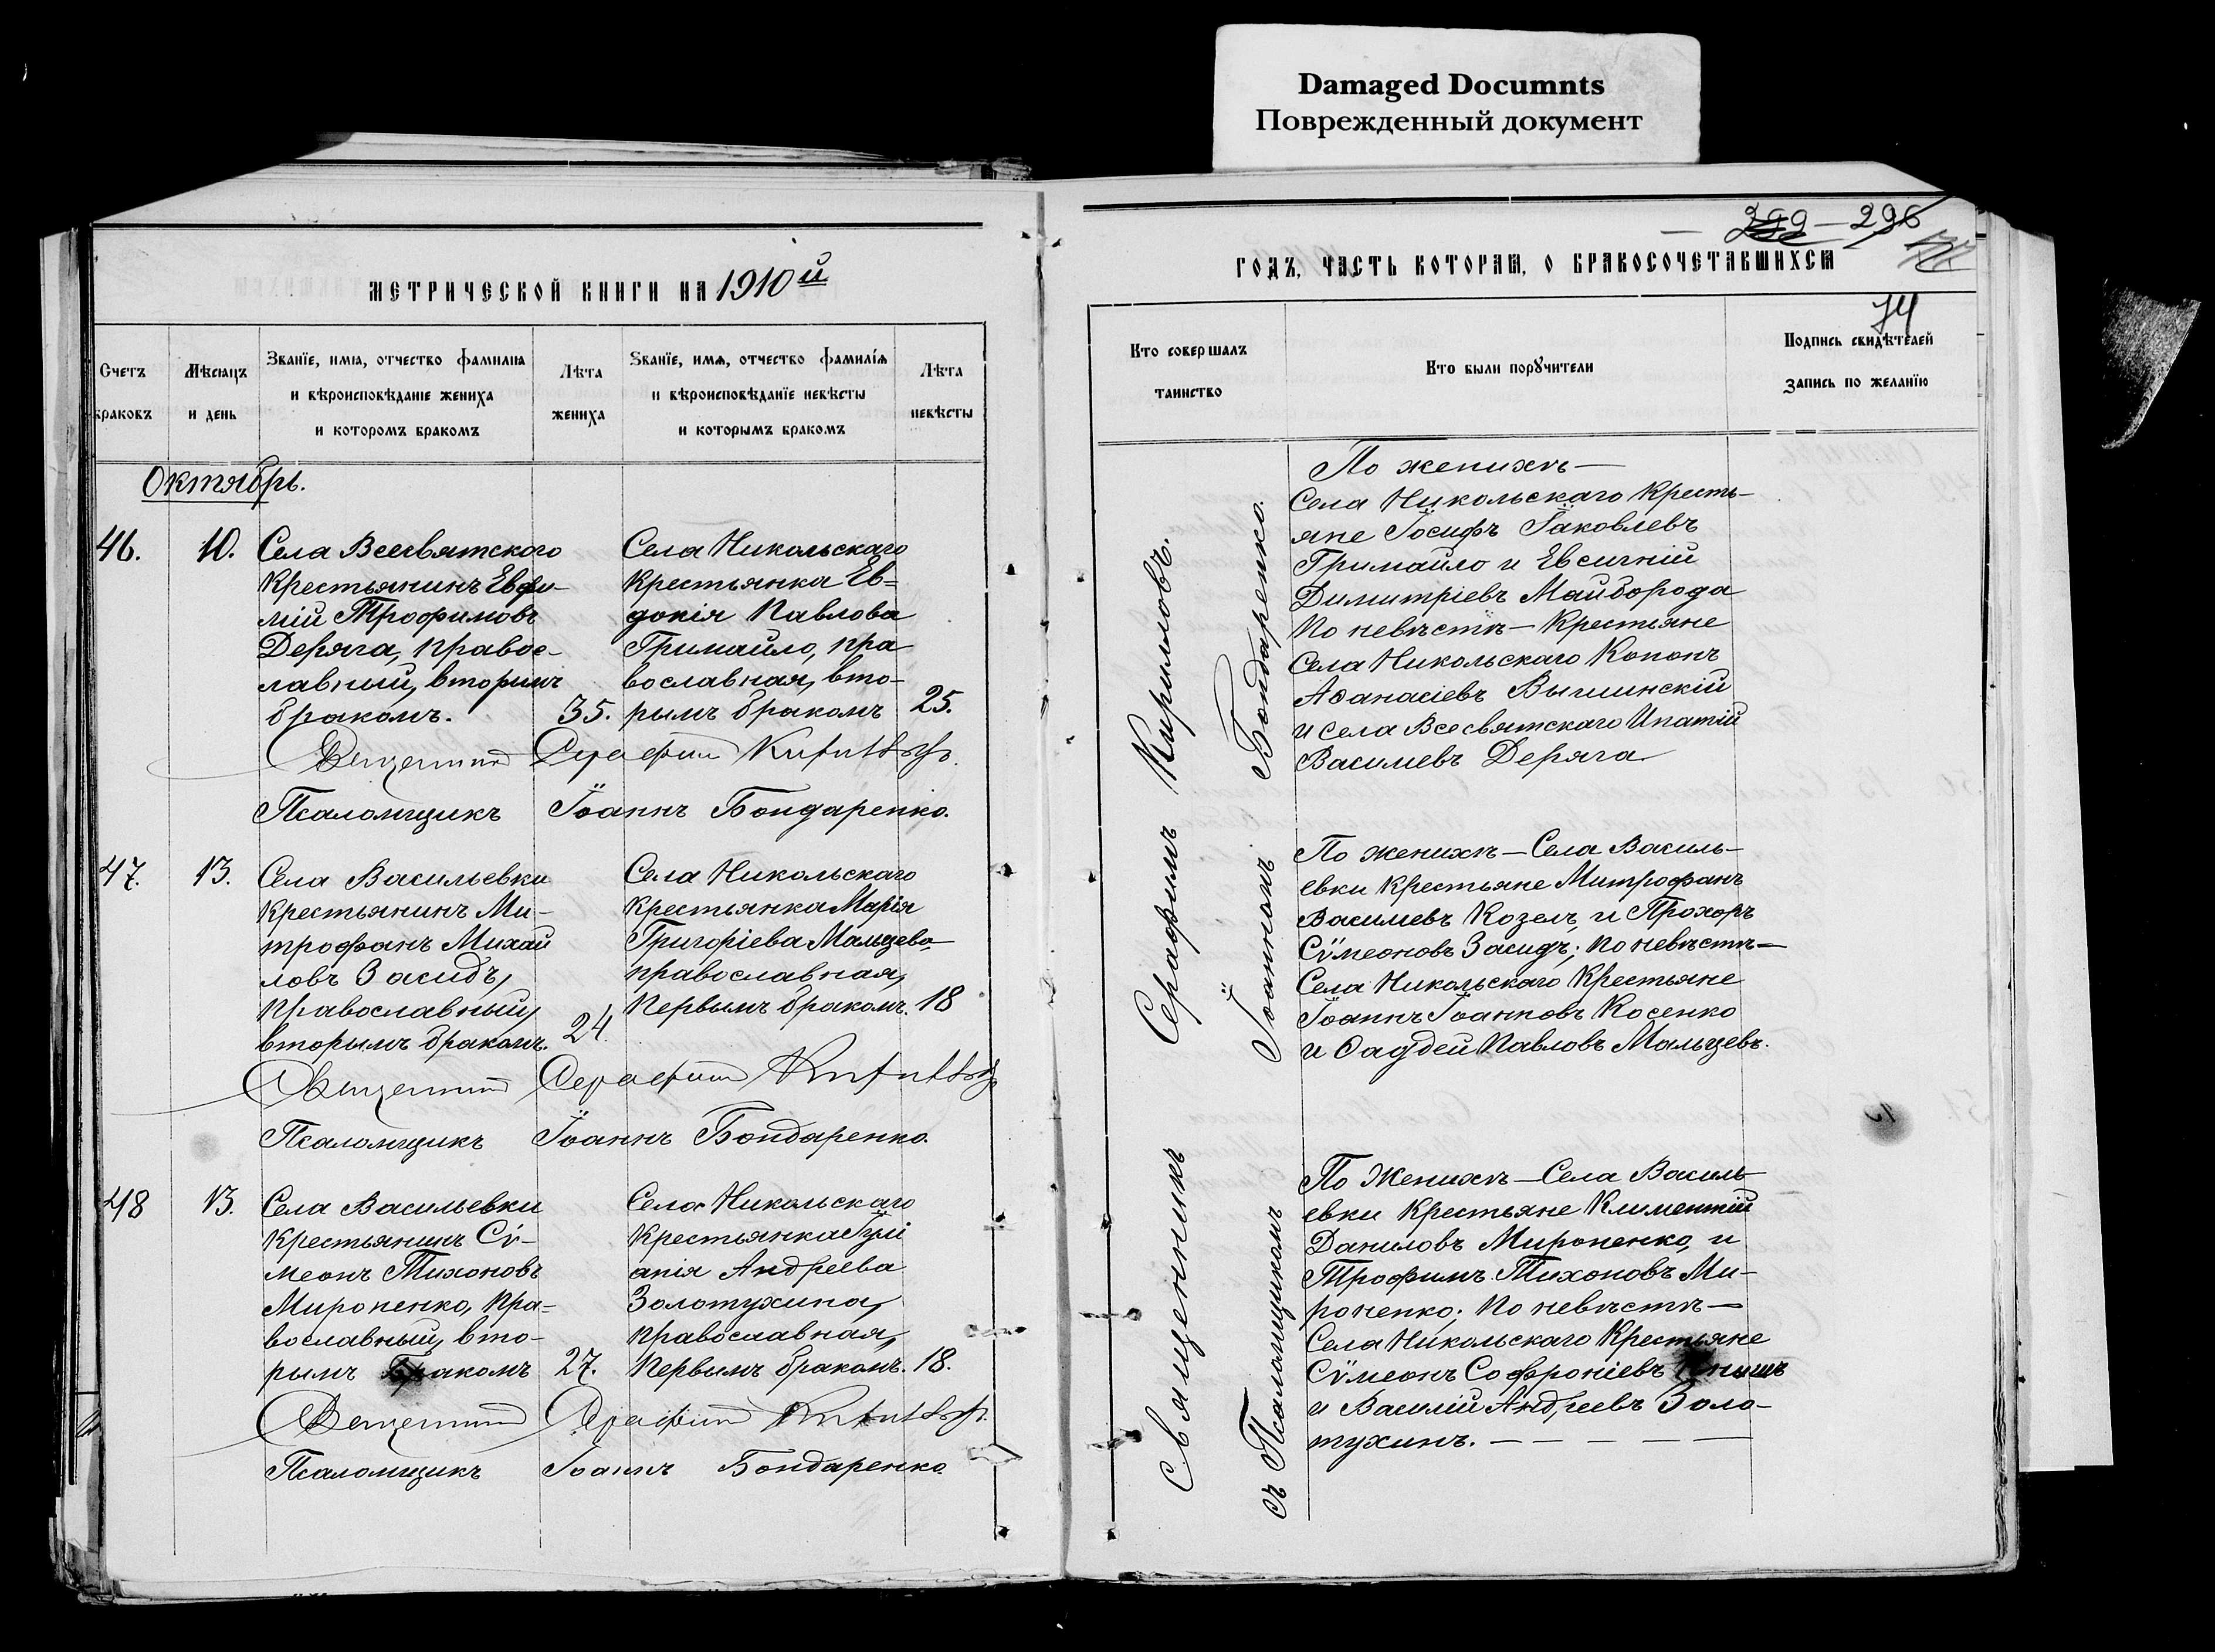 Damaged Documnts
Поврежденный документ
МЕТРИЧЕСКОЙ КНИГИ НА 1910й
Счетъ браковъ
Мѣсяцъ и день
Званїе, имя, отчество фамилиа
и вѣроисповѣданіе жениха
и которомъ бракомъ
Лѣта жениха
Званїе, имя, отчество фамилїя
и вѣроисповѣданїе невѣсты
и которымъ бракомъ
Лѣта невѣсты
Октябрь.
46.
10.
Села Всесвятского
Крестьянинъ Евфи-
мій Трофимовъ
Деряга, правос-
лавный, вторымъ
бракомъ.
35.
Села Никольскаго
Крестьянка Ев=
докія Павлова
Гримайло, пра
вославная, вто-
рымъ бракомъ
25.
Священникъ Серафимъ Кириловъ.
Псаломщикъ Іоаннъ Бондаренко.
47.
13.
Села Васильевки
Крестьянинъ Ми-
трофанъ Михай
ловъ Засидъ,
Православный,
вторымъ бракомъ.
24.
Села Никольскаго
Крестьянка Марія
Григоріева Мальцева
православная,
Первымъ бракомъ.
18
Священникъ Серафимъ Кириловъ
Псаломщикъ Іоаннъ Бондаренко.
48
13.
Села Васильевки
Крестьянинъ Сѵ-
меонъ Тихоновъ
Мироненко, Пра=
вославный, вто-
рымъ Бракомъ
27.
Села Никольскаго
Крестьянка Іулі
анія Андреева
Золотухина,
православная,
Первымъ бракомъ.
18.
Священникъ Серафимъ Кириловъ.
Псаломщикъ Іоаннъ Бондаренко
299 — 296
74
ГОДЪ, ЧАСТЬ КОТОРАЯ, О БРАКОСОЧЕТАВШИХСЯ
Кто совершалъ
таинство
Кто были порꙋчители
Подпись свидѣтелей
запись по желанїю
Священникъ Серафимъ Кириловъ.
съ Псаломщикомъ Іоанномъ Бондаренко.
По женихѣ —
Села Никольскаго Кресть-
яне Іосифъ Іаковлевъ
Гримайло и Евсигній
Димитріевъ Майборода
По невѣстѣ — Крестьяне
Села Никольскаго Кононъ
Аѳанасіевъ Вышинскій
и села Всесвятскаго Ипатій
Василіевъ Деряга
По женихѣ — Села Василь-
евки Крестьяне Митрофанъ
Василіевъ Козелъ, и Прохоръ
Сѵмеоновъ Засидъ; по невѣстѣ —
Села Никольскаго Крестьяне
Іоаннъ Іоанновъ Косенко
и Ѳаддей Павловъ Мальцевъ.
По Женихѣ — Села Василь-
евки Крестьяне Климентій
Даниловъ Мироненко, и
Трофимъ Тихоновъ Ми-
роненко; По невѣстѣ —
Села Никольскаго Крестьяне
Сѵмеонъ Софроніевъ Кнышъ
и Василій Андреевъ Золо-
тухинъ. — — — — —